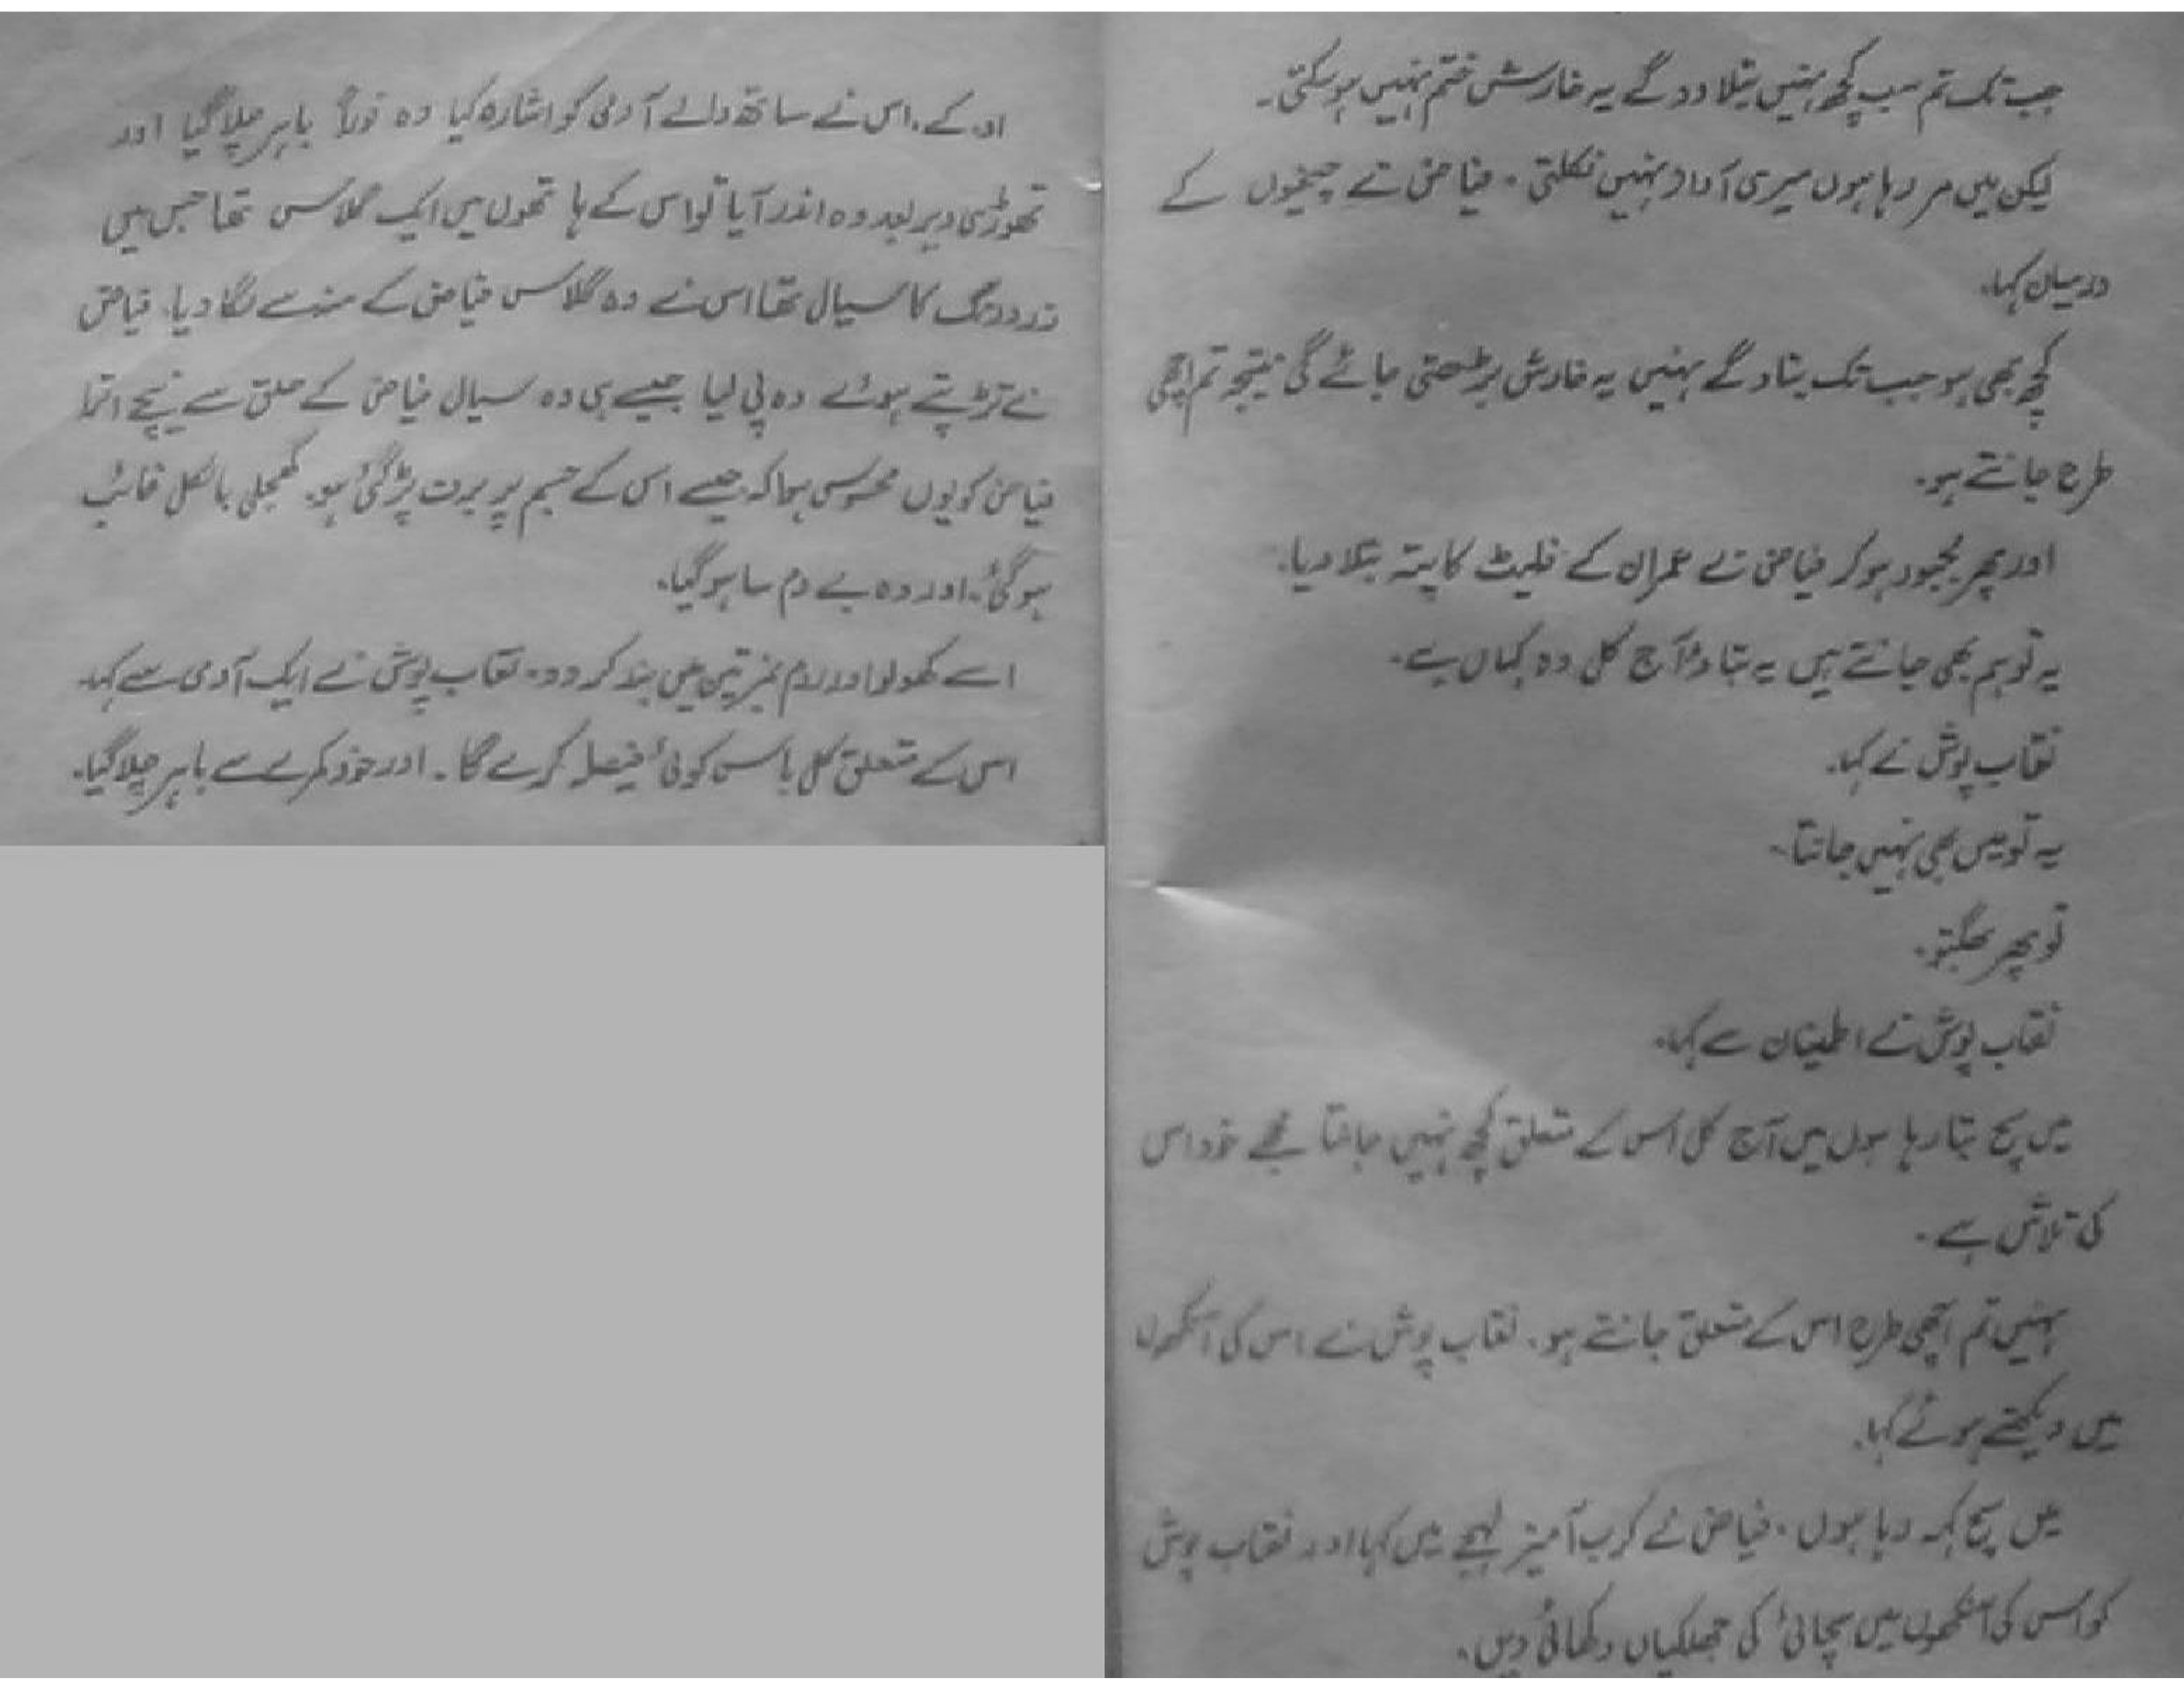 جب تک تم سب کچھ نہیں بتلا دو گے یہ خارش ختم نہیں ہو سکتی۔
لیکن میں مر رہا ہوں میری آواز نہیں نکلتی۔ فیاض نے چیخوں کے
درمیان کہا۔
کچھ بھی ہو جب تک بتاؤ گے نہیں یہ خارش بڑھتی جائے گی نتیجہ تم اچھی
طرح جانتے ہو۔
اور پھر مجبور ہو کر فیاض نے عمران کے فلیٹ کا پتہ بتلا دیا۔
یہ تو ہم بھی جانتے ہیں یہ بتاؤ آج کل وہ کہاں ہے۔
نقاب پوش نے کہا۔
یہ تو میں بھی نہیں جانتا۔
تو پھر بھگتو۔
نقاب پوش نے اطمینان سے کہا۔
میں سچ بتا رہا ہوں میں آج کل اس کے متعلق کچھ نہیں جانتا مجھے خود اس
کی تلاش ہے۔
نہیں تم اچھی طرح اس کے متعلق جانتے ہو۔ نقاب پوش نے اس کی آنکھوں
میں دیکھتے ہوئے کہا۔
میں سچ کہہ رہا ہوں۔ فیاض نے کرب آمیز لہجے میں کہا اور نقاب پوش
کو اس کی آنکھوں میں سچائی کی جھلکیاں دکھائی دیں۔
او۔کے۔ اس نے ساتھ والے آدمی کو اشارہ کیا وہ فوراً باہر چلا گیا اور
تھوڑی دیر بعد وہ اندر آیا تو اس کے ہاتھوں میں ایک گلاس تھا جس میں
زرد رنگ کا سیال تھا اس نے وہ گلاس فیاض کے منہ سے لگا دیا۔ فیاض
نے تڑپتے ہوئے وہ پی لیا جیسے ہی وہ سیال فیاض کے حلق سے نیچے اترا
فیاض کو یوں محسوس ہوا کہ جیسے اس کے جسم پر برف پڑ گئی ہو۔ کھجلی بالکل غائب
ہو گئی۔ اور وہ بے دم سا ہو گیا۔
اسے کھولو اور روم نمبر تین میں بند کر دو۔ نقاب پوش نے ایک آدمی سے کہا۔
اس کے متعلق کل باس کوئی فیصلہ کرے گا۔ اور خود کمرے سے باہر چلا گیا۔